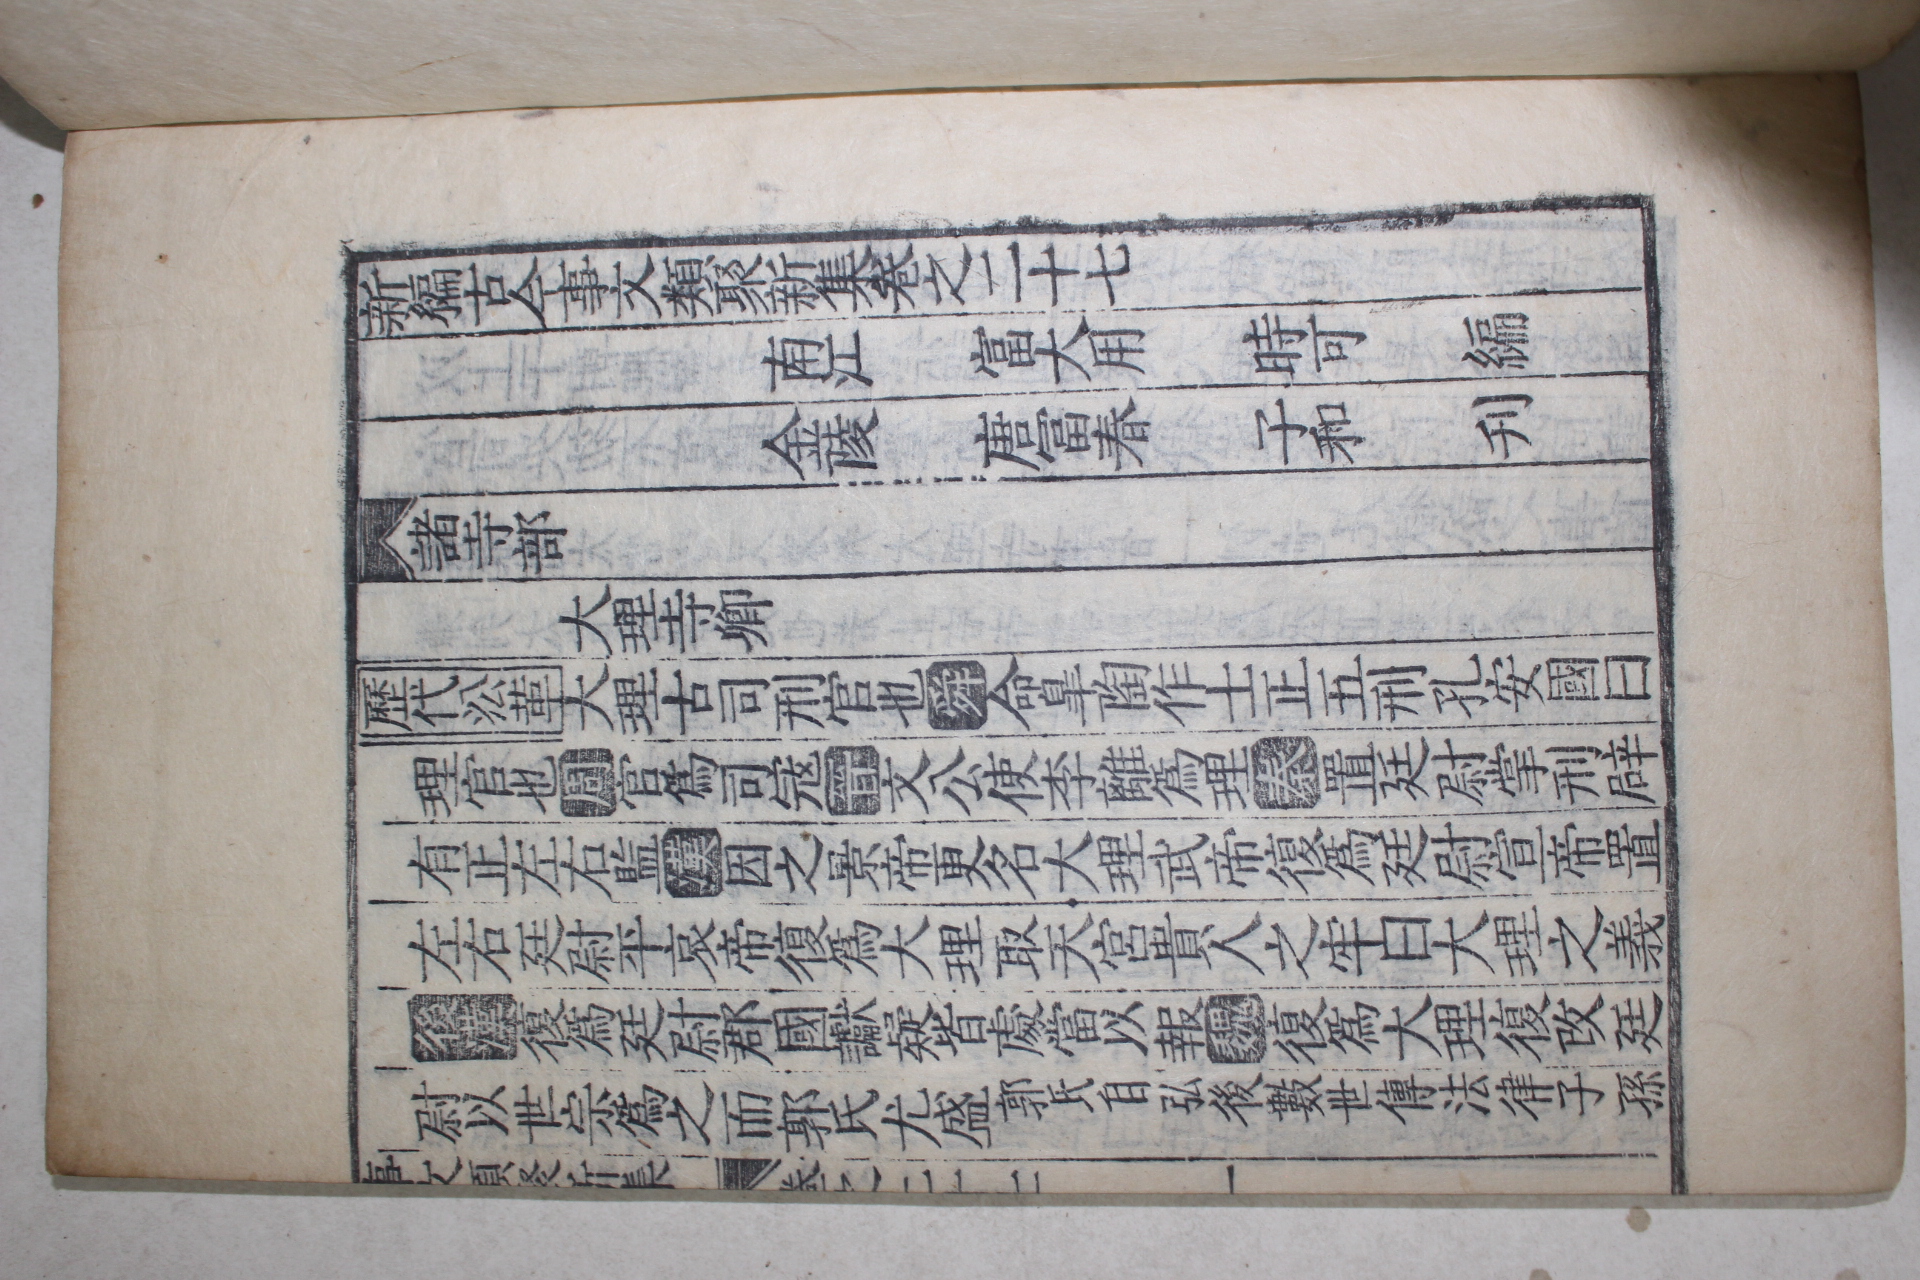 新編古今事文類聚新集卷之二十七
南江 富大用 時可 編
金陵 唐富春 子和 刋
諸寺部
大理寺卿
歷代㳂革大理古司刑官也舜命臯陶作士正五刑孔安國曰
理官也周官爲司宼晉文公使李離爲理秦置廷尉掌刑辟
有正左右監漢因之景帝更名大理武帝復爲廷尉宣帝置
左右廷尉平哀帝復爲大理取天官貴人之牢曰大理之義
後漢復爲廷尉郡國讞疑皆處當以報魏復爲大理復改廷
尉以世宗爲之而郭氏尤盛郭氏自弘後數世傳法律子孫
事文類聚新集 卷之二十七 一